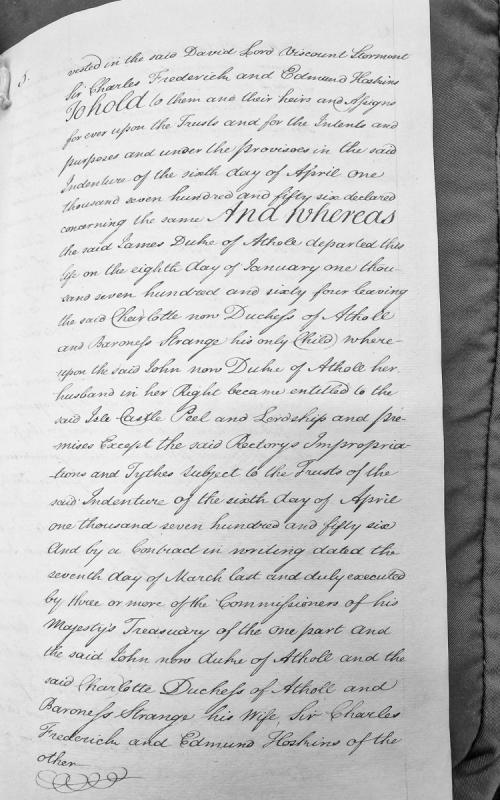 5.
vested in the said David Lord Viscount Stormont
Sir Charles Frederick and Edmund Hoskins
To hold to them and their heirs and Assigns
for ever upon the Trusts and for the Intents and
purposes and under the provisoes in the said
Indenture of the sixth day of April one
thousand seven hundred and fifty six declared
concerning the same And Whereas
the said James Duke of Athole departed this
life on the eighth day of January one thou-
sand seven hundred and sixty four leaving
the said Charlotte now Duchess of Atholl
and Baroness Strange his only Child where-
upon the said John now Duke of Atholl her
husband in her Right became entitled to the
said Isle Castle Peel and Lordship and pre-
mises Except the said Rectorys Impropria-
-tions and Tythes subject to the Trusts of the
said Indenture of the sixth day of April
one thousand seven hundred and fifty six
And by a Contract in writing dated the
seventh day of March last and duly executed
by three or more of the Commissioners of his
Majesty's Treasuary of the one part and
the said John now duke of Atholl and the
said Charlotte Duchess of Atholl and
Baroness Strange his Wife, Sir Charles
Frederick and Edmund Hoskins of the
other